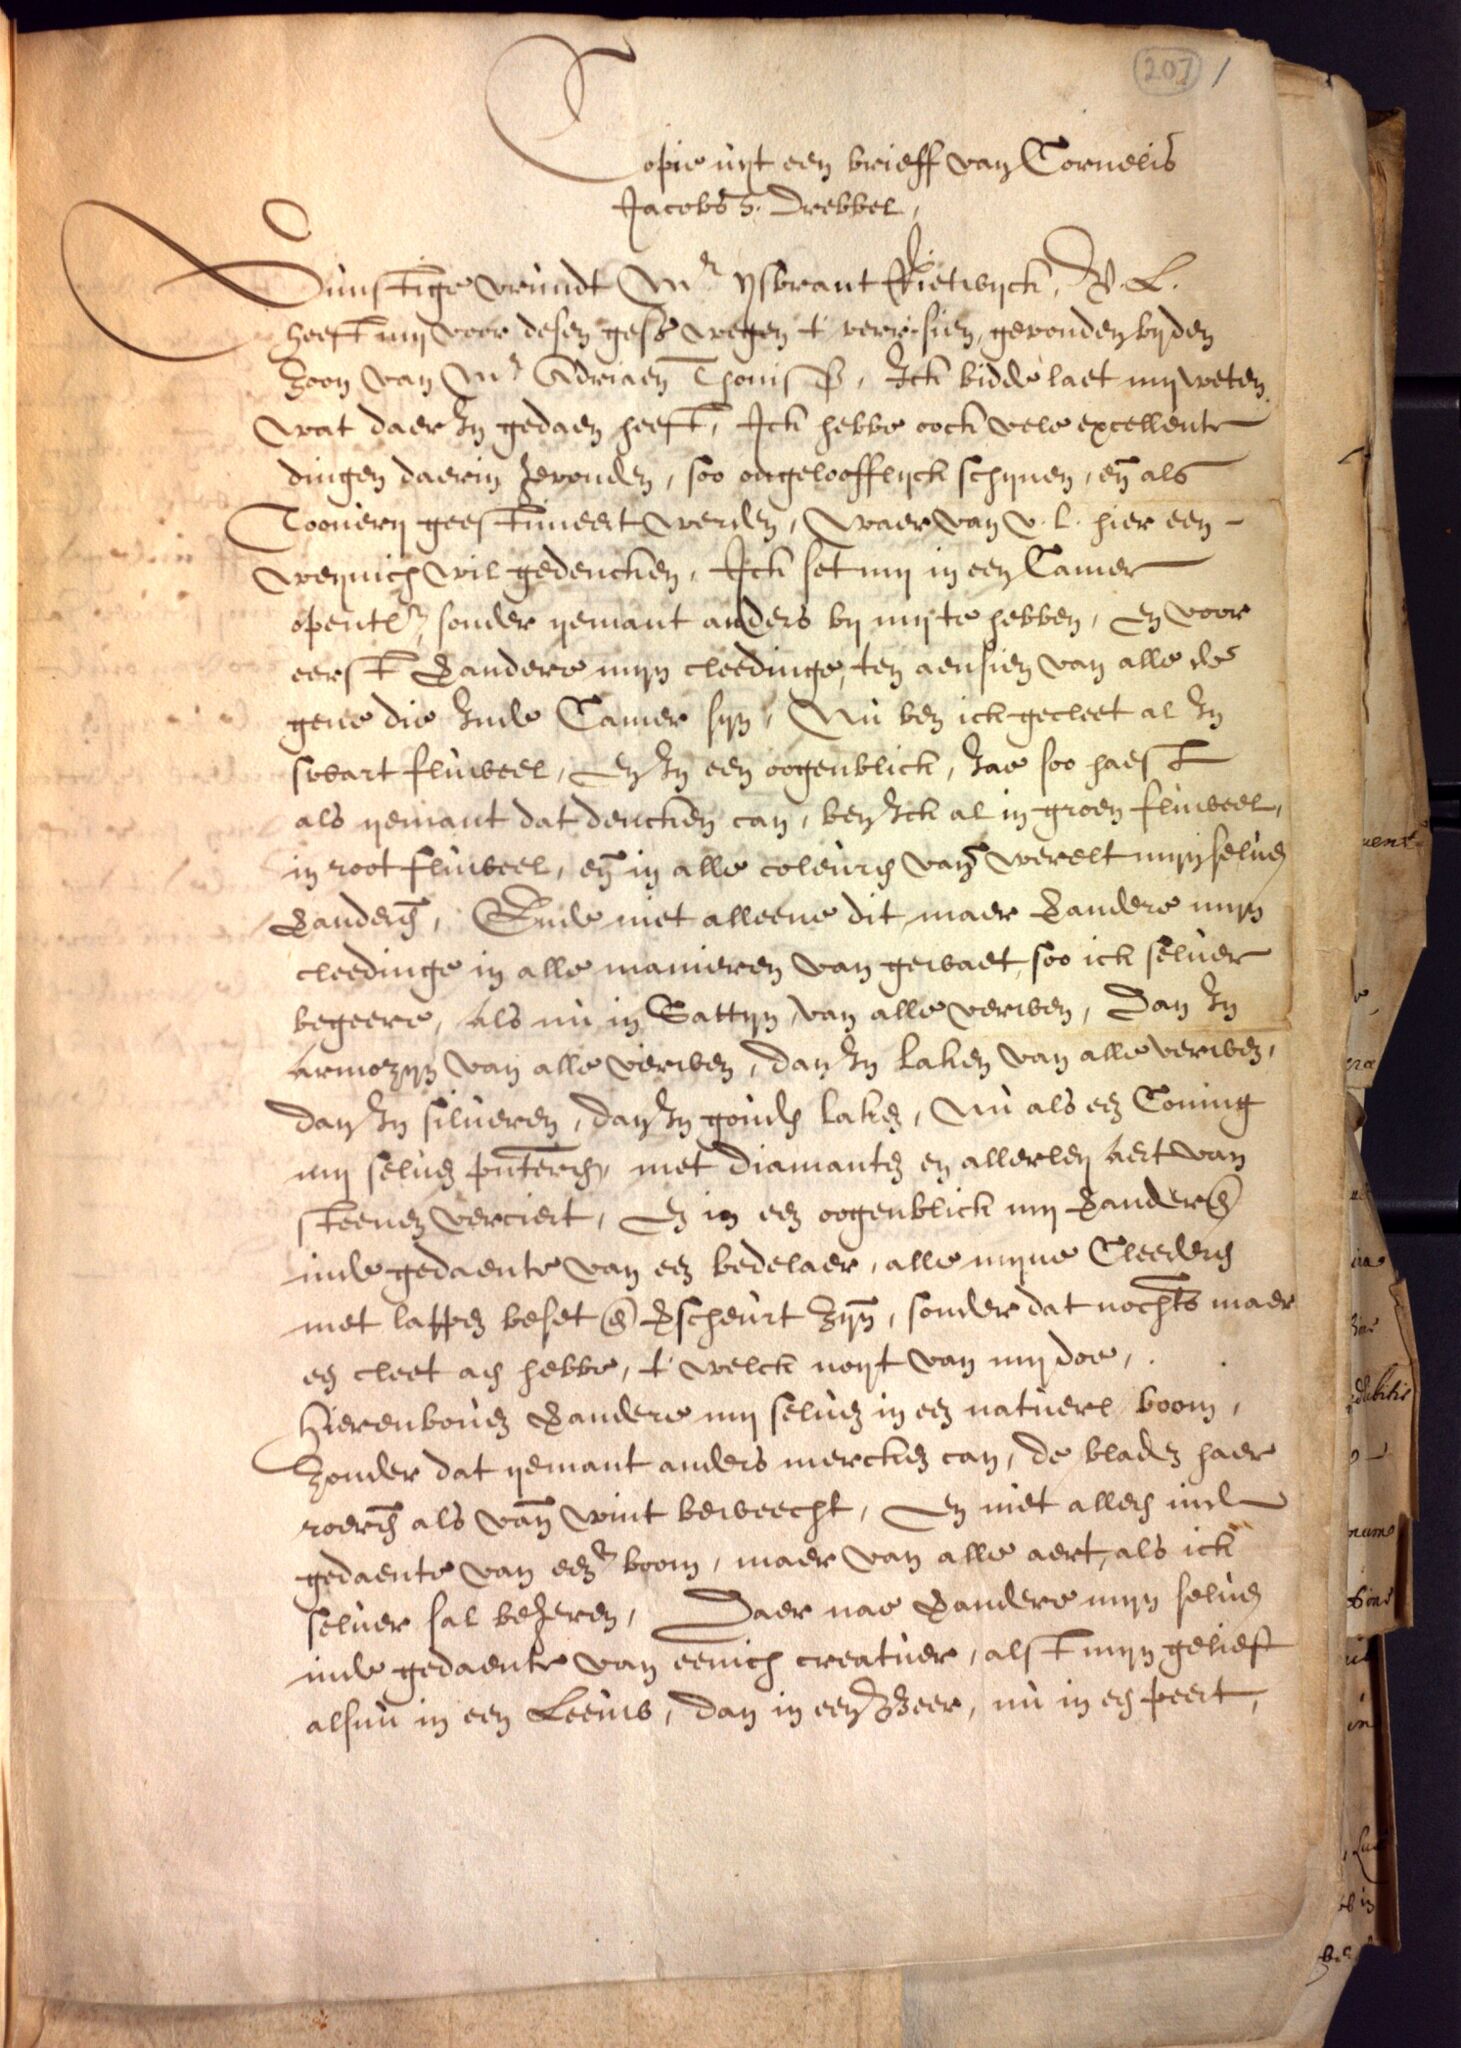 207 1
Copie uyt een brieff van Cornelis
Jacobsz. Drebbel,
Gunstige vrundt Mr ysbrant Rietwyck, V. L.
heeft my voor desen gess wegen t' verresien, gevonden byden
Zoon van Mr Adriaen Thonisz, Ick bidde laet my weten
wat daer In gedaen heeft, Ick hebbe oock vele excellente
dingen daerin gevonden, soo ongelooflyck schynen, en als
Toovery geestimeert werden, waer van v. l. hier een
weynich wil gedencken, Ick set my in een Camer
opentl sonder yemant anders by my te hebben, En voor
eerst verandere myn cleedinge, ten aensien van alle de
gene die Inde Camer syn, Nu ben ick gecleet al In
swart fluweel, En In een oogenblick, Jae soo haest
als yemant dat dencken can, ben Ick al in groen fluweel,
in root fluweel, en in alle coleuren van werelt myn selven
veranderen, Ende niet alleene dit, maer verandere myn
cleedinge in alle manieren van gewaet, soo ick selver
begeere, Als nu in Sattyn, van alle verwen, Dan In
Armozyn van alle verwen, dan In laken van alle verwen,
dan In silveren, dan In gouden laken, Nu als een Coning
my selven pnteren, met diamanten en allerley Aert van
steenen verciert, En in een oogenblick my veranderen
inde gedaente van een bedelaer, alle myne Cleederen
met lappen beset en verscheurt zyn, sonder dat nochts maer
een cleet aen hebbe, t' welck noyt van my doe,
Hierenboven verandere my selven in een natuerl boom,
Zonder dat yemant anders mercken can, de bladen haer
roeren als van wint beweecht, En niet alleen inde
gedaente van een boom, maer van alle aert, als ick
selver sal begeren, Daer nae verandere myn selven
inde gedaente van eenich creatuer, alst myn gelieft
alsnu in een Leeuw, dan in een Beer, nu in een peert,